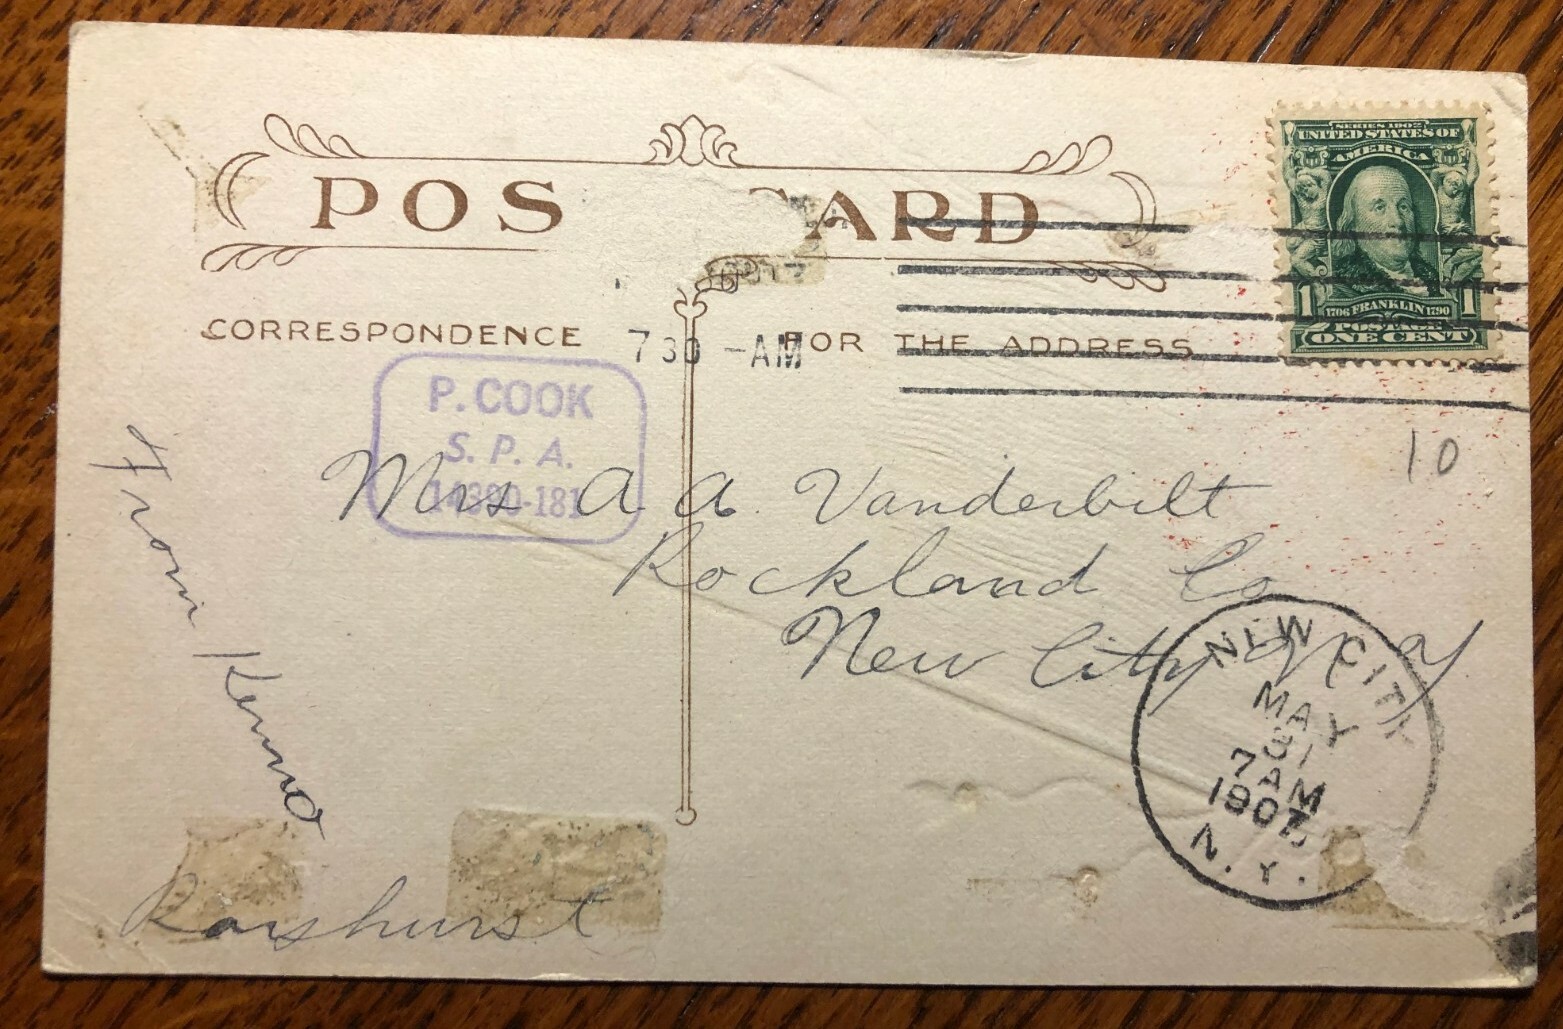 SERIES 1902
UNITED STATES OF
AMERICA
1 1706 FRANKLIN 1790 1
POSTAGE
ONE CENT
POS CARD
CORRESPONDENCE
FOR THE ADDRESS
7 30 -AM
P. COOK
S. P. A.
14390-181
10
Mrs A A Vanderbilt
Rockland Co
New City N Y
NEW CITY
MAY
31
7 AM
1907
N. Y.
From Kenno